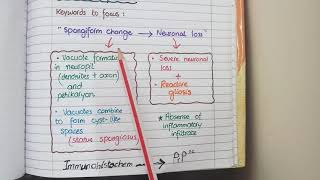 Keywords to focus :
" Spongiform change → Neuronal loss
• Vacuole format
in neuropil
(dendrites + axon)
and
perikaryon
• Vacuoles combine
to form cyst-like
spaces
(status spongiosus)
• Severe neuronal
loss
+
• Reactive
gliosis
* Absence of
inflammatory
infiltrate
Immunohistochem